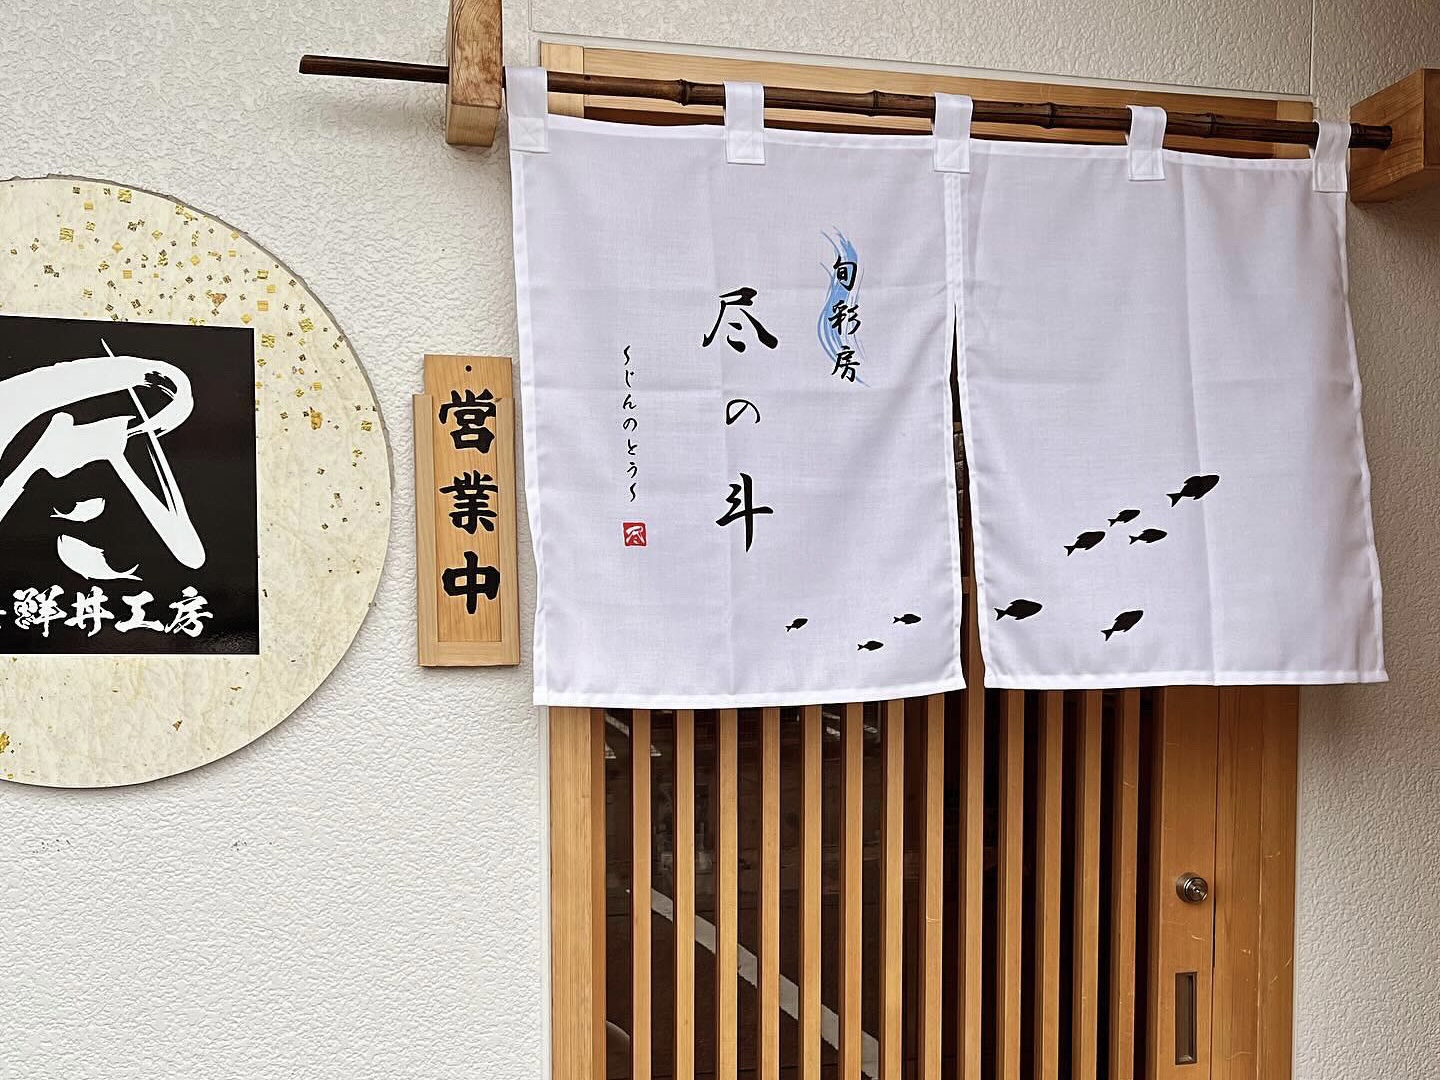 旬彩房
尽の斗
〜じんのとう〜
尽
営業中
尽
鮮丼工房